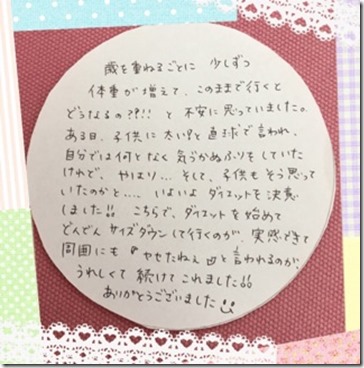 歳を重ねるごとに 少しずつ
体重が増えて、このままで行くと
どうなるの??!! と 不安に思っていました。
ある日、子供に太い!?と直球で言われ、
自分では何となく気づかぬふりをしていた
けれど、やはり… そして、子供もそう思って
いたのかと…、いよいよダイエットを決意
しました!! こちらで、ダイエットを始めて
どんどん サイズダウンして行くのが、実感できて
周囲にも『やせたねぇ』と言われるのが、
うれしくて 続けてこれました!!
ありがとうございました